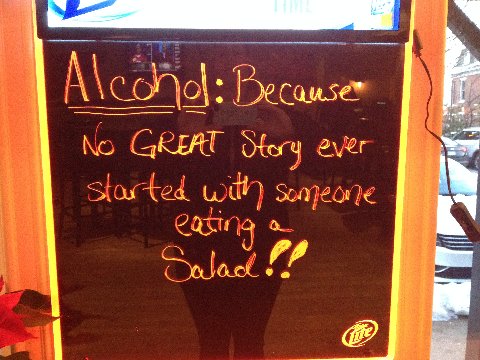 TIME
Alcohol: Because
No GREAT Story ever
started with someone
eating a
Salad!!
Lite